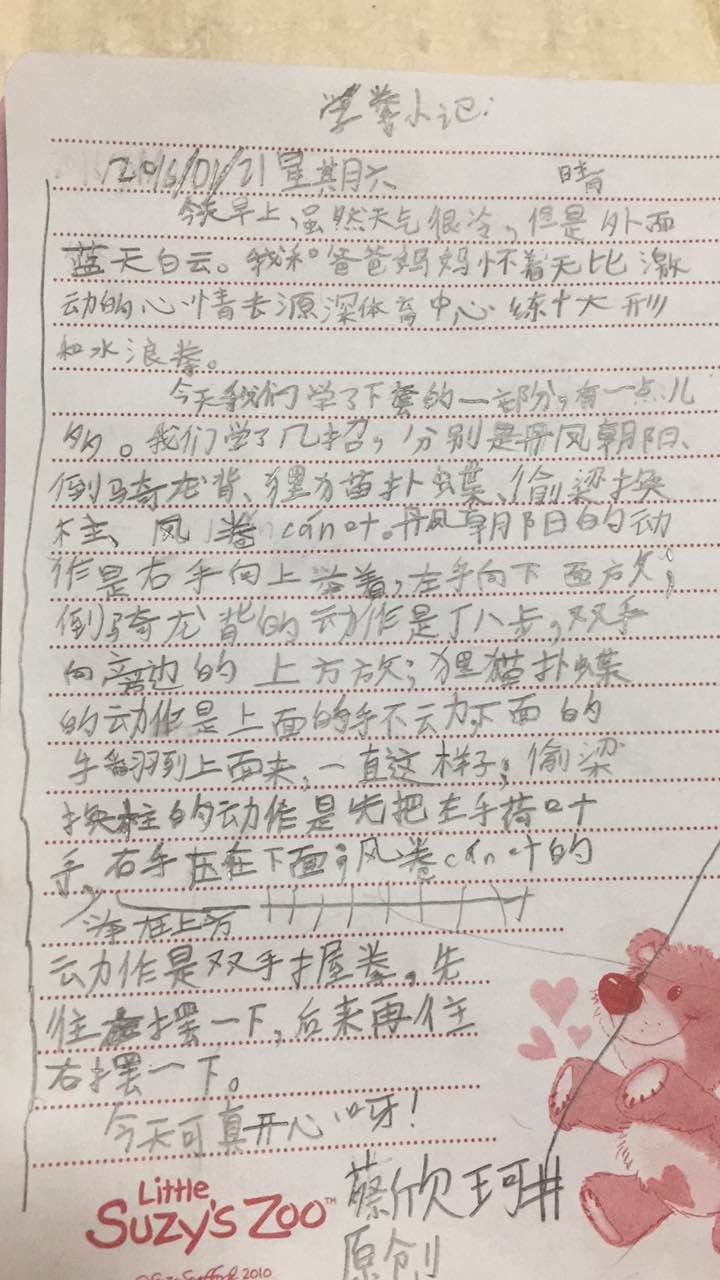 学拳小记:
2016/01/21星期六 晴
今天早上,虽然天气很冷,但是外面
蓝天白云。我和爸爸妈妈怀着无比激
动的心情去源深体育中心练十大形
和水浪拳。
今天我们学了下套的一部份,有一点儿
多。我们学了几招,分别是丹凤朝阳、
倒骑龙背、狸猫扑蝶、偷梁换
柱、风卷cán叶。丹凤朝阳的动
作是右手向上举着,左手向下面放;
倒骑龙背的动作是丁八步,双手
向旁边的上方放;狸猫扑蝶
的动作是上面的手不动下面的
手翻到上面来,一直这样子;偷梁
换柱的动作是先把左手荷叶
手,右手压在下面;风卷cán叶的
举在上方
动作是双手握拳,先
往左摆一下,后来再往
右摆一下。
今天可真开心呀!
Little
Suzy's Zoo™
蔡欣珂
原创
2010